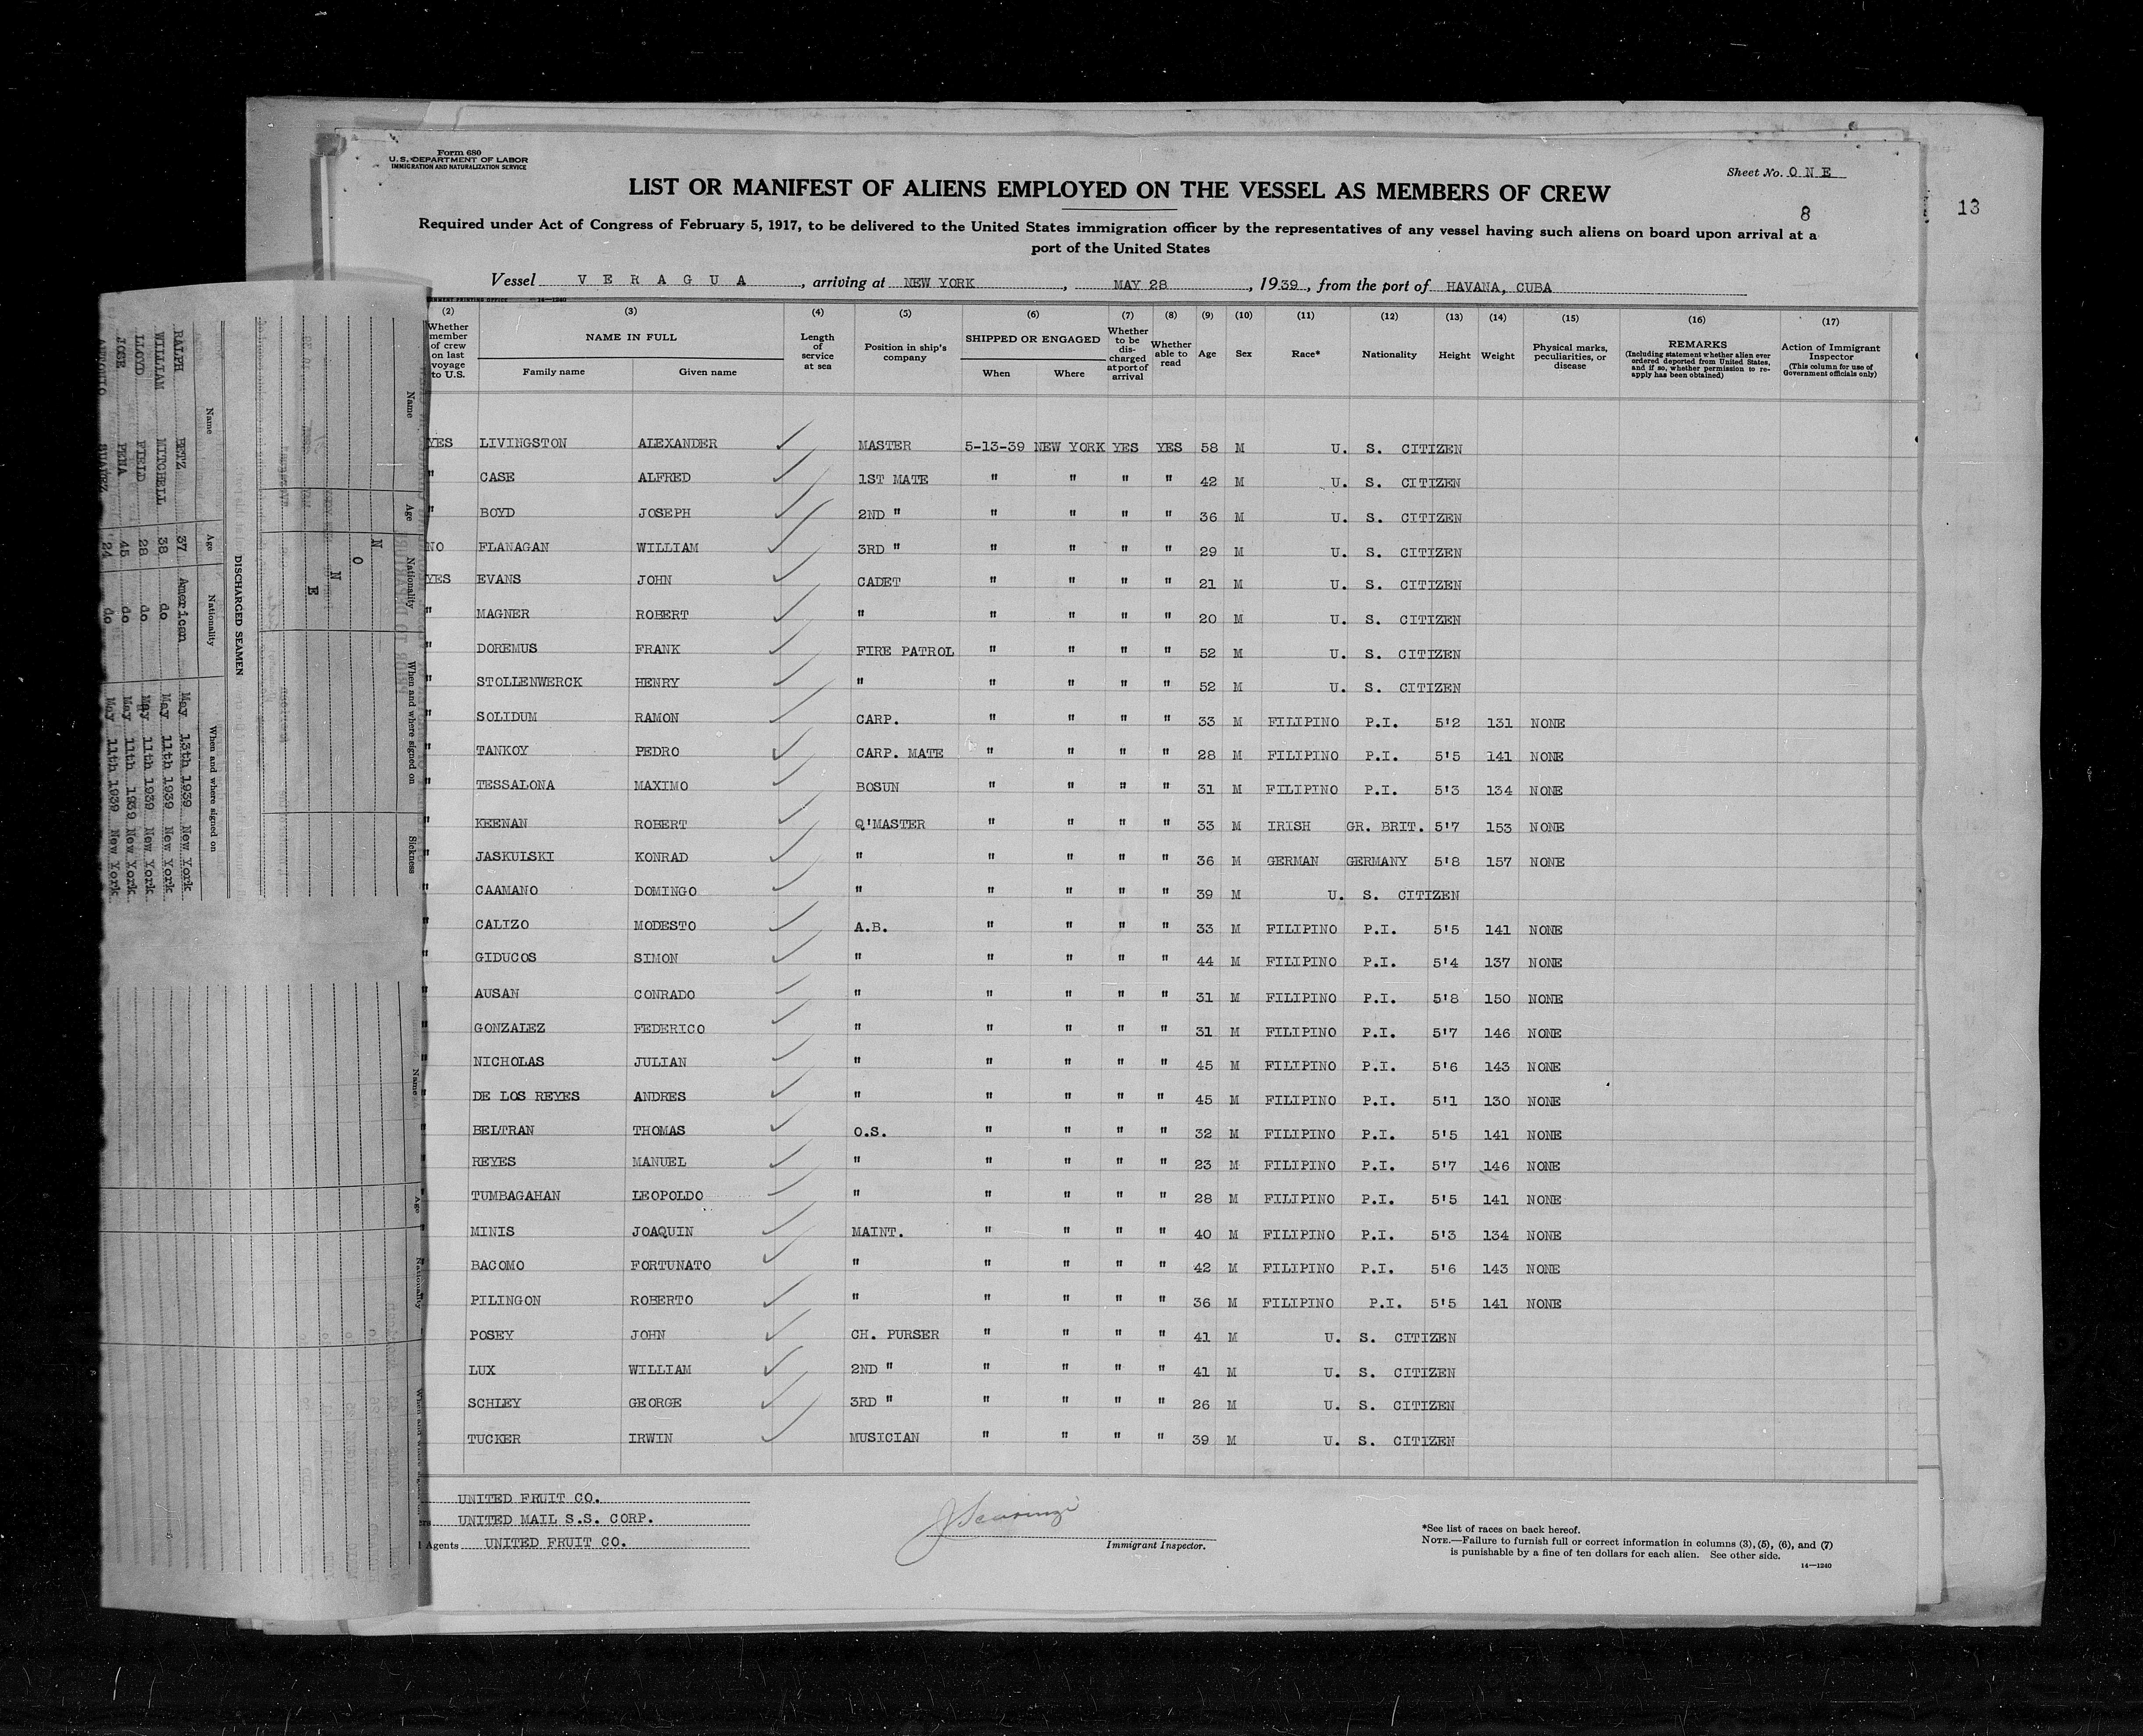 Form 680
U. S. DEPARTMENT OF LABOR
IMMIGRATION AND NATURALIZATION SERVICE
Sheet No. ONE
LIST OR MANIFEST OF ALIENS EMPLOYED ON THE VESSEL AS MEMBERS OF CREW
8
13
Required under Act of Congress of February 5, 1917, to be delivered to the United States immigration officer by the representatives of any vessel having such aliens on board upon arrival at a
port of the United States
Vessel VERAGUA, arriving at NEW YORK, MAY 28, 1939, from the port of HAVANA, CUBA
14—1240
(2) (3) (4) (5) (6) (7) (8) (9) (10) (11) (12) (13) (14) (15) (16) (17)
Whether member of crew on last voyage to U.S. NAME IN FULL Family name Given name Length of service at sea Position in ship's company SHIPPED OR ENGAGED When Where Whether to be discharged at port of arrival Whether able to read Age Sex Race* Nationality Height Weight Physical marks, peculiarities, or disease REMARKS (Including statement whether alien ever ordered deported from United States, and if so, whether permission to reapply has been obtained) Action of Immigrant Inspector (This column for use of Government officials only)
YES LIVINGSTON ALEXANDER MASTER 5-13-39 NEW YORK YES YES 58 M U. S. CITIZEN
" CASE ALFRED 1ST MATE " " " " 42 M U. S. CITIZEN
" BOYD JOSEPH 2ND " " " " " 36 M U. S. CITIZEN
NO FLANAGAN WILLIAM 3RD " " " " " 29 M U. S. CITIZEN
YES EVANS JOHN CADET " " " " 21 M U. S. CITIZEN
" MAGNER ROBERT " " " " " 20 M U. S. CITIZEN
" DOREMUS FRANK FIRE PATROL " " " " 52 M U. S. CITIZEN
" STOLLENWERCK HENRY " " " " " 52 M U. S. CITIZEN
" SOLIDUM RAMON CARP. " " " " 33 M FILIPINO P.I. 5'2 131 NONE
" TANKOY PEDRO CARP. MATE " " " " 28 M FILIPINO P.I. 5'5 141 NONE
" TESSALONA MAXIMO BOSUN " " " " 31 M FILIPINO P.I. 5'3 134 NONE
" KEENAN ROBERT Q'MASTER " " " " 33 M IRISH GR. BRIT. 5'7 153 NONE
" JASKULSKI KONRAD " " " " " 36 M GERMAN GERMANY 5'8 157 NONE
" CAAMANO DOMINGO " " " " " 39 M U. S. CITIZEN
" CALIZO MODESTO A.B. " " " " 33 M FILIPINO P.I. 5'5 141 NONE
" GIDUCOS SIMON " " " " " 44 M FILIPINO P.I. 5'4 137 NONE
" AUSAN CONRADO " " " " " 31 M FILIPINO P.I. 5'8 150 NONE
" GONZALEZ FEDERICO " " " " " 31 M FILIPINO P.I. 5'7 146 NONE
" NICHOLAS JULIAN " " " " " 45 M FILIPINO P.I. 5'6 143 NONE
" DE LOS REYES ANDRES " " " " " 45 M FILIPINO P.I. 5'1 130 NONE
" BELTRAN THOMAS O.S. " " " " 32 M FILIPINO P.I. 5'5 141 NONE
" REYES MANUEL " " " " " 23 M FILIPINO P.I. 5'7 146 NONE
" TUMBAGAHAN LEOPOLDO " " " " " 28 M FILIPINO P.I. 5'5 141 NONE
" MINIS JOAQUIN MAINT. " " " " 40 M FILIPINO P.I. 5'3 134 NONE
BACOMO FORTUNATO " " " " " 42 M FILIPINO P.I. 5'6 143 NONE
PILINGON ROBERTO " " " " " 36 M FILIPINO P.I. 5'5 141 NONE
POSEY JOHN CH. PURSER " " " " 41 M U. S. CITIZEN
LUX WILLIAM 2ND " " " " " 41 M U. S. CITIZEN
SCHLEY GEORGE 3RD " " " " " 26 M U. S. CITIZEN
TUCKER IRWIN MUSICIAN " " " " 39 M U. S. CITIZEN
UNITED FRUIT CO.
UNITED MAIL S.S. CORP.
Agents UNITED FRUIT CO.
Immigrant Inspector.
*See list of races on back hereof.
NOTE.—Failure to furnish full or correct information in columns (3), (5), (6), and (7)
is punishable by a fine of ten dollars for each alien. See other side.
14—1240
Name Age Nationality When and where signed on Sickness
NONE
DISCHARGED SEAMEN
Name Age Nationality When and where signed on
RALPH BETZ 37 American May 13th 1939 New York
WILLIAM MITCHELL 38 do May 11th 1939 New York
LLOYD FIELD 28 do May 11th 1939 New York
JOSE PENA 45 do May 11th 1939 New York
ANTONIO SUAREZ 24 do May 11th 1939 New York
Name Age Nationality When and where signed on